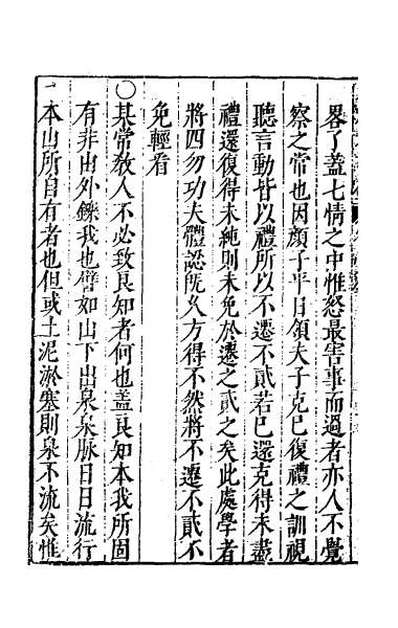 畧了蓋七情之中惟怒最害事而過者亦人不覺
察之常也因顔子平日領夫子克已復禮之訓視
聽言動皆以禮所以不遷不貳若已還克得未盡
禮還復得未純則未免於遷之貳之矣此處學者
將四勿功夫體認旣久方得不然將不遷不貳不
免輕看
〇某常敎人不必致良知者何也蓋良知本我所固
有非由外鑠我也譬如山下出泉泉脉日日流行
本山所自有者也但或土泥淤塞則泉不流矣惟